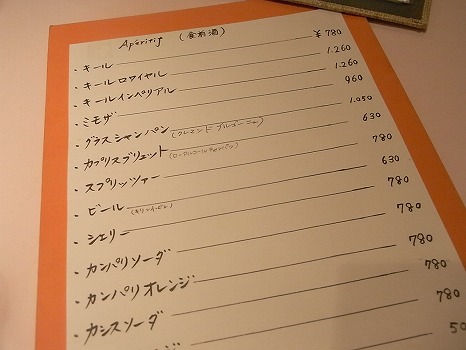 Apéritif (食前酒)
・キール ¥780
・キールロワイヤル 1.260
・キールインペリアル 1.260
・ミモザ 960
・グラスシャンパン (クレマンド ブルゴーニュ) 1.050
・カプリスブリュエット (ローアルコールシャンパン) 630
・スプリッツァー 780
・ビール 630
・シェリー 780
・カンパリソーダ 780
・カンパリオレンジ 780
・カシスソーダ 780
ンジ 780
50